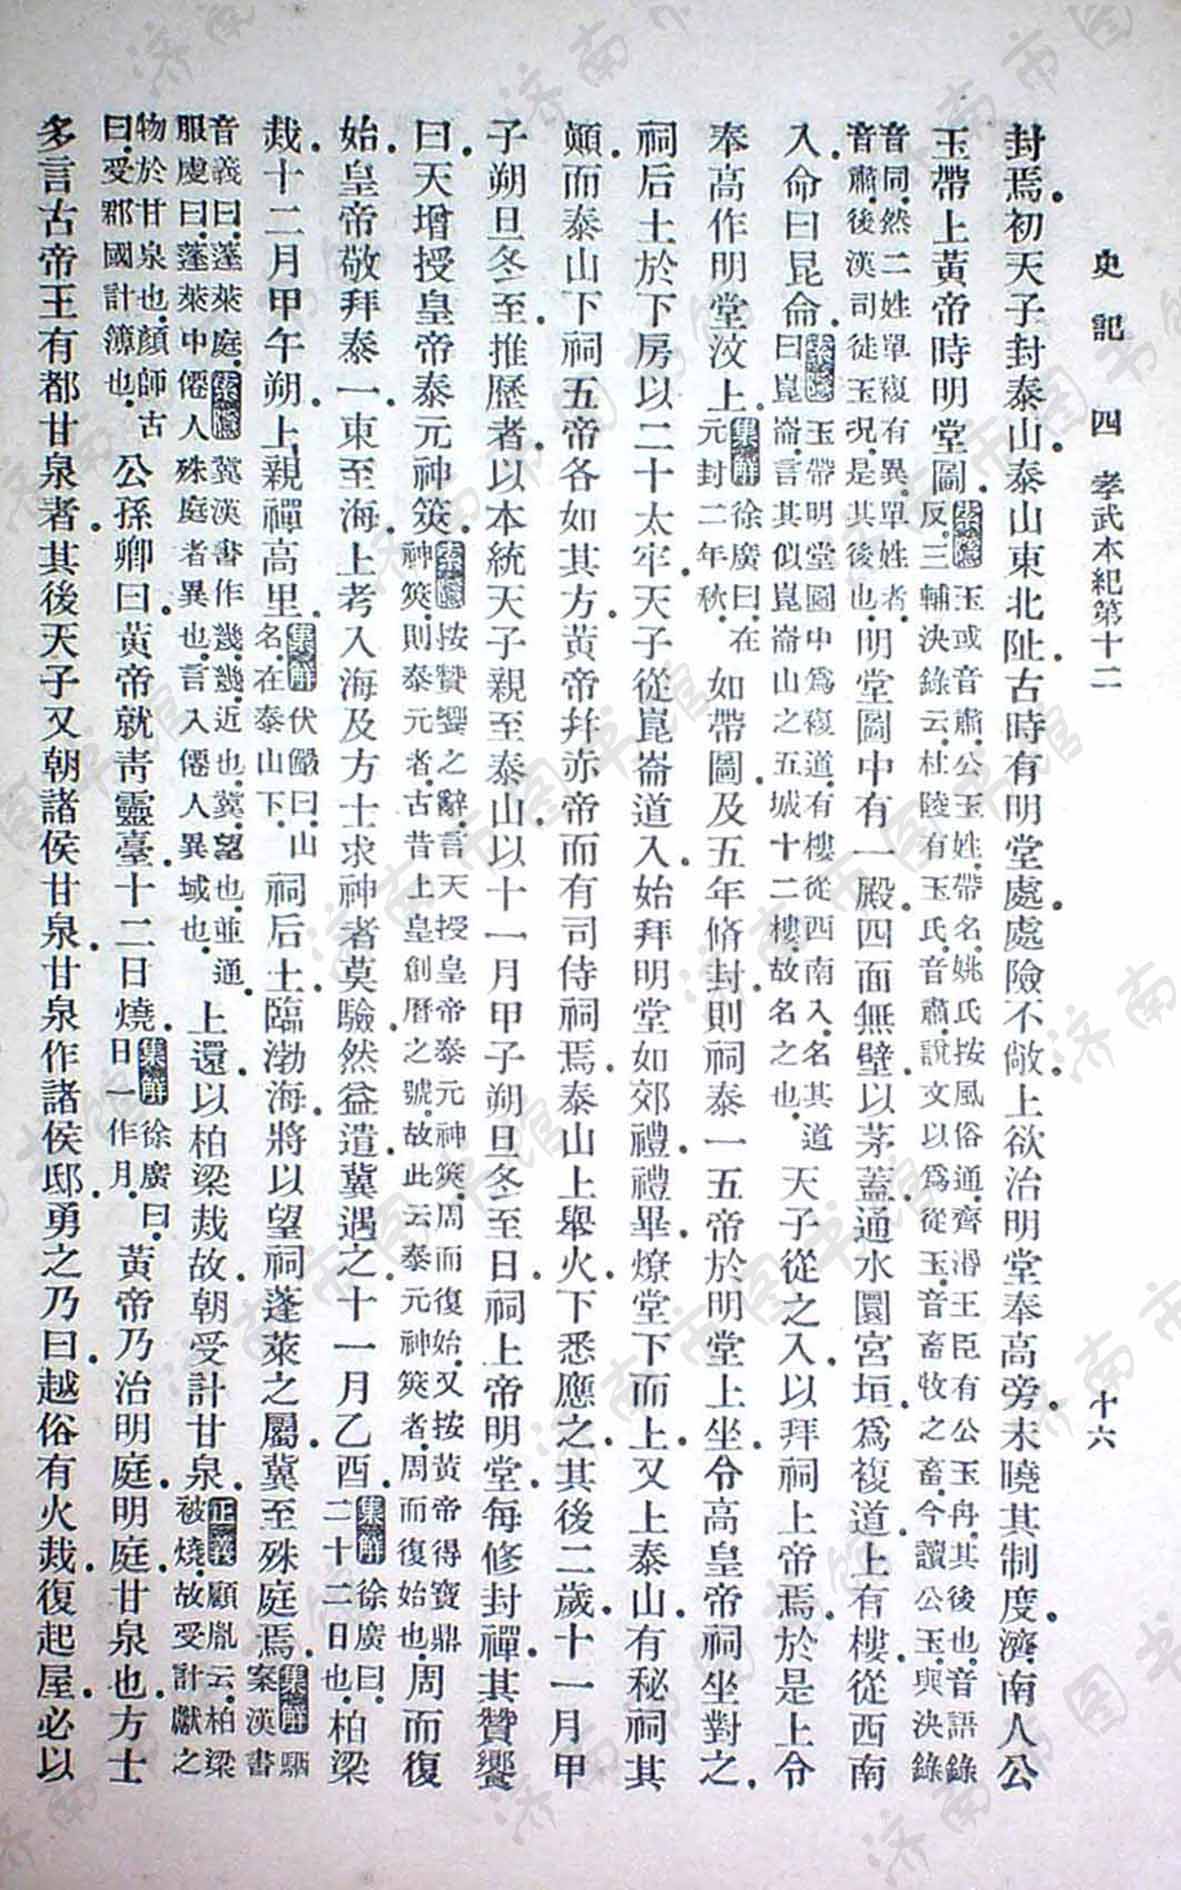 史記 四 孝武本紀第十二 十六
封焉。初天子封泰山。泰山東北阯。古時有明堂處。處險不敞。上欲治明堂奉高旁。未曉其制度。濟南人公
玉帶上黃帝時明堂圖。索隱玉或音肅。公玉姓。帶名。姚氏按風俗通。齊湣王臣有公玉冉。其後也。音語錄反。三輔決錄云。杜陵有玉氏。音肅。說文以爲從玉。音畜牧之畜。今讀公玉。與決錄
音同。然二姓單複有異。單姓者。音肅。後漢司徒玉況。是其後也。明堂圖中有一殿。四面無壁。以茅蓋。通水圜宮垣。爲複道。上有樓。從西南
入。命曰昆侖。索隱玉帶明堂圖中爲複道。有樓從西南入。名其道曰崑崙。言其似崑崙山之五城十二樓。故名之也。天子從之入。以拜祠上帝焉。於是上令
奉高作明堂汶上。集解徐廣曰。在元封二年秋。如帶圖。及五年脩封。則祠泰一五帝於明堂上坐。令高皇帝祠坐對之。
祠后土於下房。以二十太牢。天子從崑崙道入。始拜明堂如郊禮。禮畢。燎堂下。而上。又上泰山。有秘祠其
顚。而泰山下祠五帝。各如其方。黃帝幷赤帝。而有司侍祠焉。泰山上舉火。下悉應之。其後二歲。十一月甲
子朔旦冬至。推歷者。以本統天子親至泰山。以十一月甲子朔旦冬至日。祠上帝明堂。每修封禪。其贊饗
曰。天增授皇帝泰元神筴。索隱按贊饗之辭。言天授皇帝泰元神筴。周而復始。又按黃帝得寶鼎神筴。則泰元者。古昔上皇創曆之號。故此云泰元神筴者。周而復始也。周而復
始。皇帝敬拜泰一。東至海上。考入海及方士求神者莫驗。然益遣。冀遇之。十一月乙酉。集解徐廣曰。二十二日也。柏梁
烖。十二月甲午朔。上親禪高里。集解伏儼曰。山名。在泰山下。祠后土。臨渤海。將以望祠蓬萊之屬。冀至殊庭焉。集解駰案漢書
音義曰。蓬萊庭。索隱冀漢書作幾。幾。近也。冀。望也。並通。服虔曰。蓬萊中僊人殊庭者異也。言入僊人異域也。上還。以柏梁烖故。朝受計甘泉。正義顧胤云。柏梁被燒。故受計獻之
物於甘泉也。顏師古曰。受郡國計簿也。公孫卿曰。黃帝就靑靈臺。十二日燒。集解徐廣曰。日一作月。黃帝乃治明庭。明庭。甘泉也。方士
多言古帝王有都甘泉者。其後天子又朝諸侯甘泉。甘泉作諸侯邸。勇之乃曰。越俗有火烖。復起屋。必以